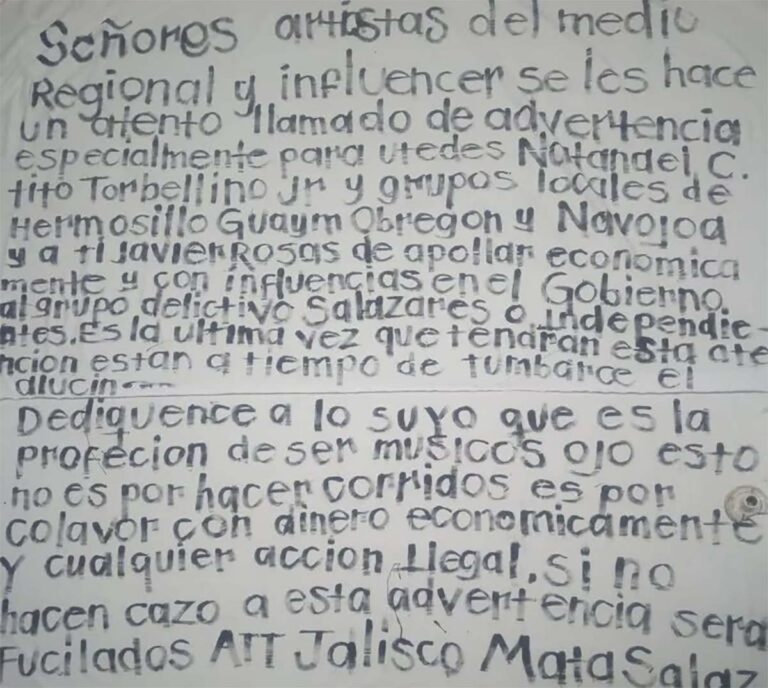 Señores artistas del medio
Regional y influencer se les hace
un atento llamado de advertencia
especialmente para utedes Natanael C.
tito Torbellino Jr y grupos locales de
Hermosillo Guaym Obregon y Navojoa
y a ti Javier Rosas de apollar economica
mente y con influencias en el Gobierno.
al grupo delictivo Salazares o independie-
ntes. Es la ultima vez que tendran esta ate
ncion estan a tiempo de tumbarce el
alucin----
Dediquence a lo suyo que es la
profecion de ser musicos ojo esto
no es por hacer corridos es por
colavor con dinero economicamente
y cualquier accion Llegal, si no
hacen cazo a esta advertencia sera
Fucilados ATT Jalisco Mata Salaz